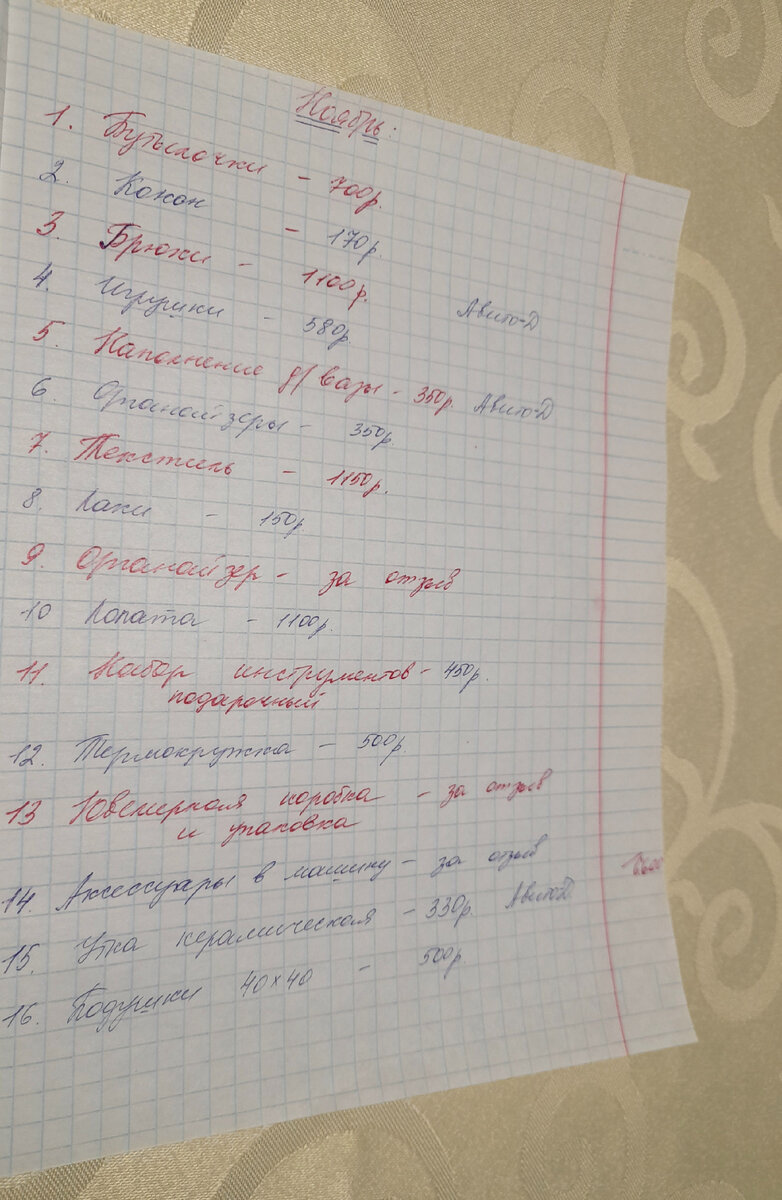 Ноябрь.
1. Бутылочки - 700р.
2. Кокон - 170р.
3. Брюки - 1100р.
4. Игрушки - 580р Авито-Д
5. Наполнение д/вазы - 350р. Авито-Д
6. Органайзеры - 350р.
7. Текстиль - 1150р.
8. Лаки - 150р
9. Органайзер - за отзыв
10 Лопата - 1100р.
11. Набор инструментов - 450р.
подарочный
12. Термокружка - 500р
13 Ювелирная коробка - за отзыв
и упаковка
14. Аксессуары в машину - за отзыв
15. Утка керамическая - 330р. Авито-Д
16. Подушки 40×40 - 500р